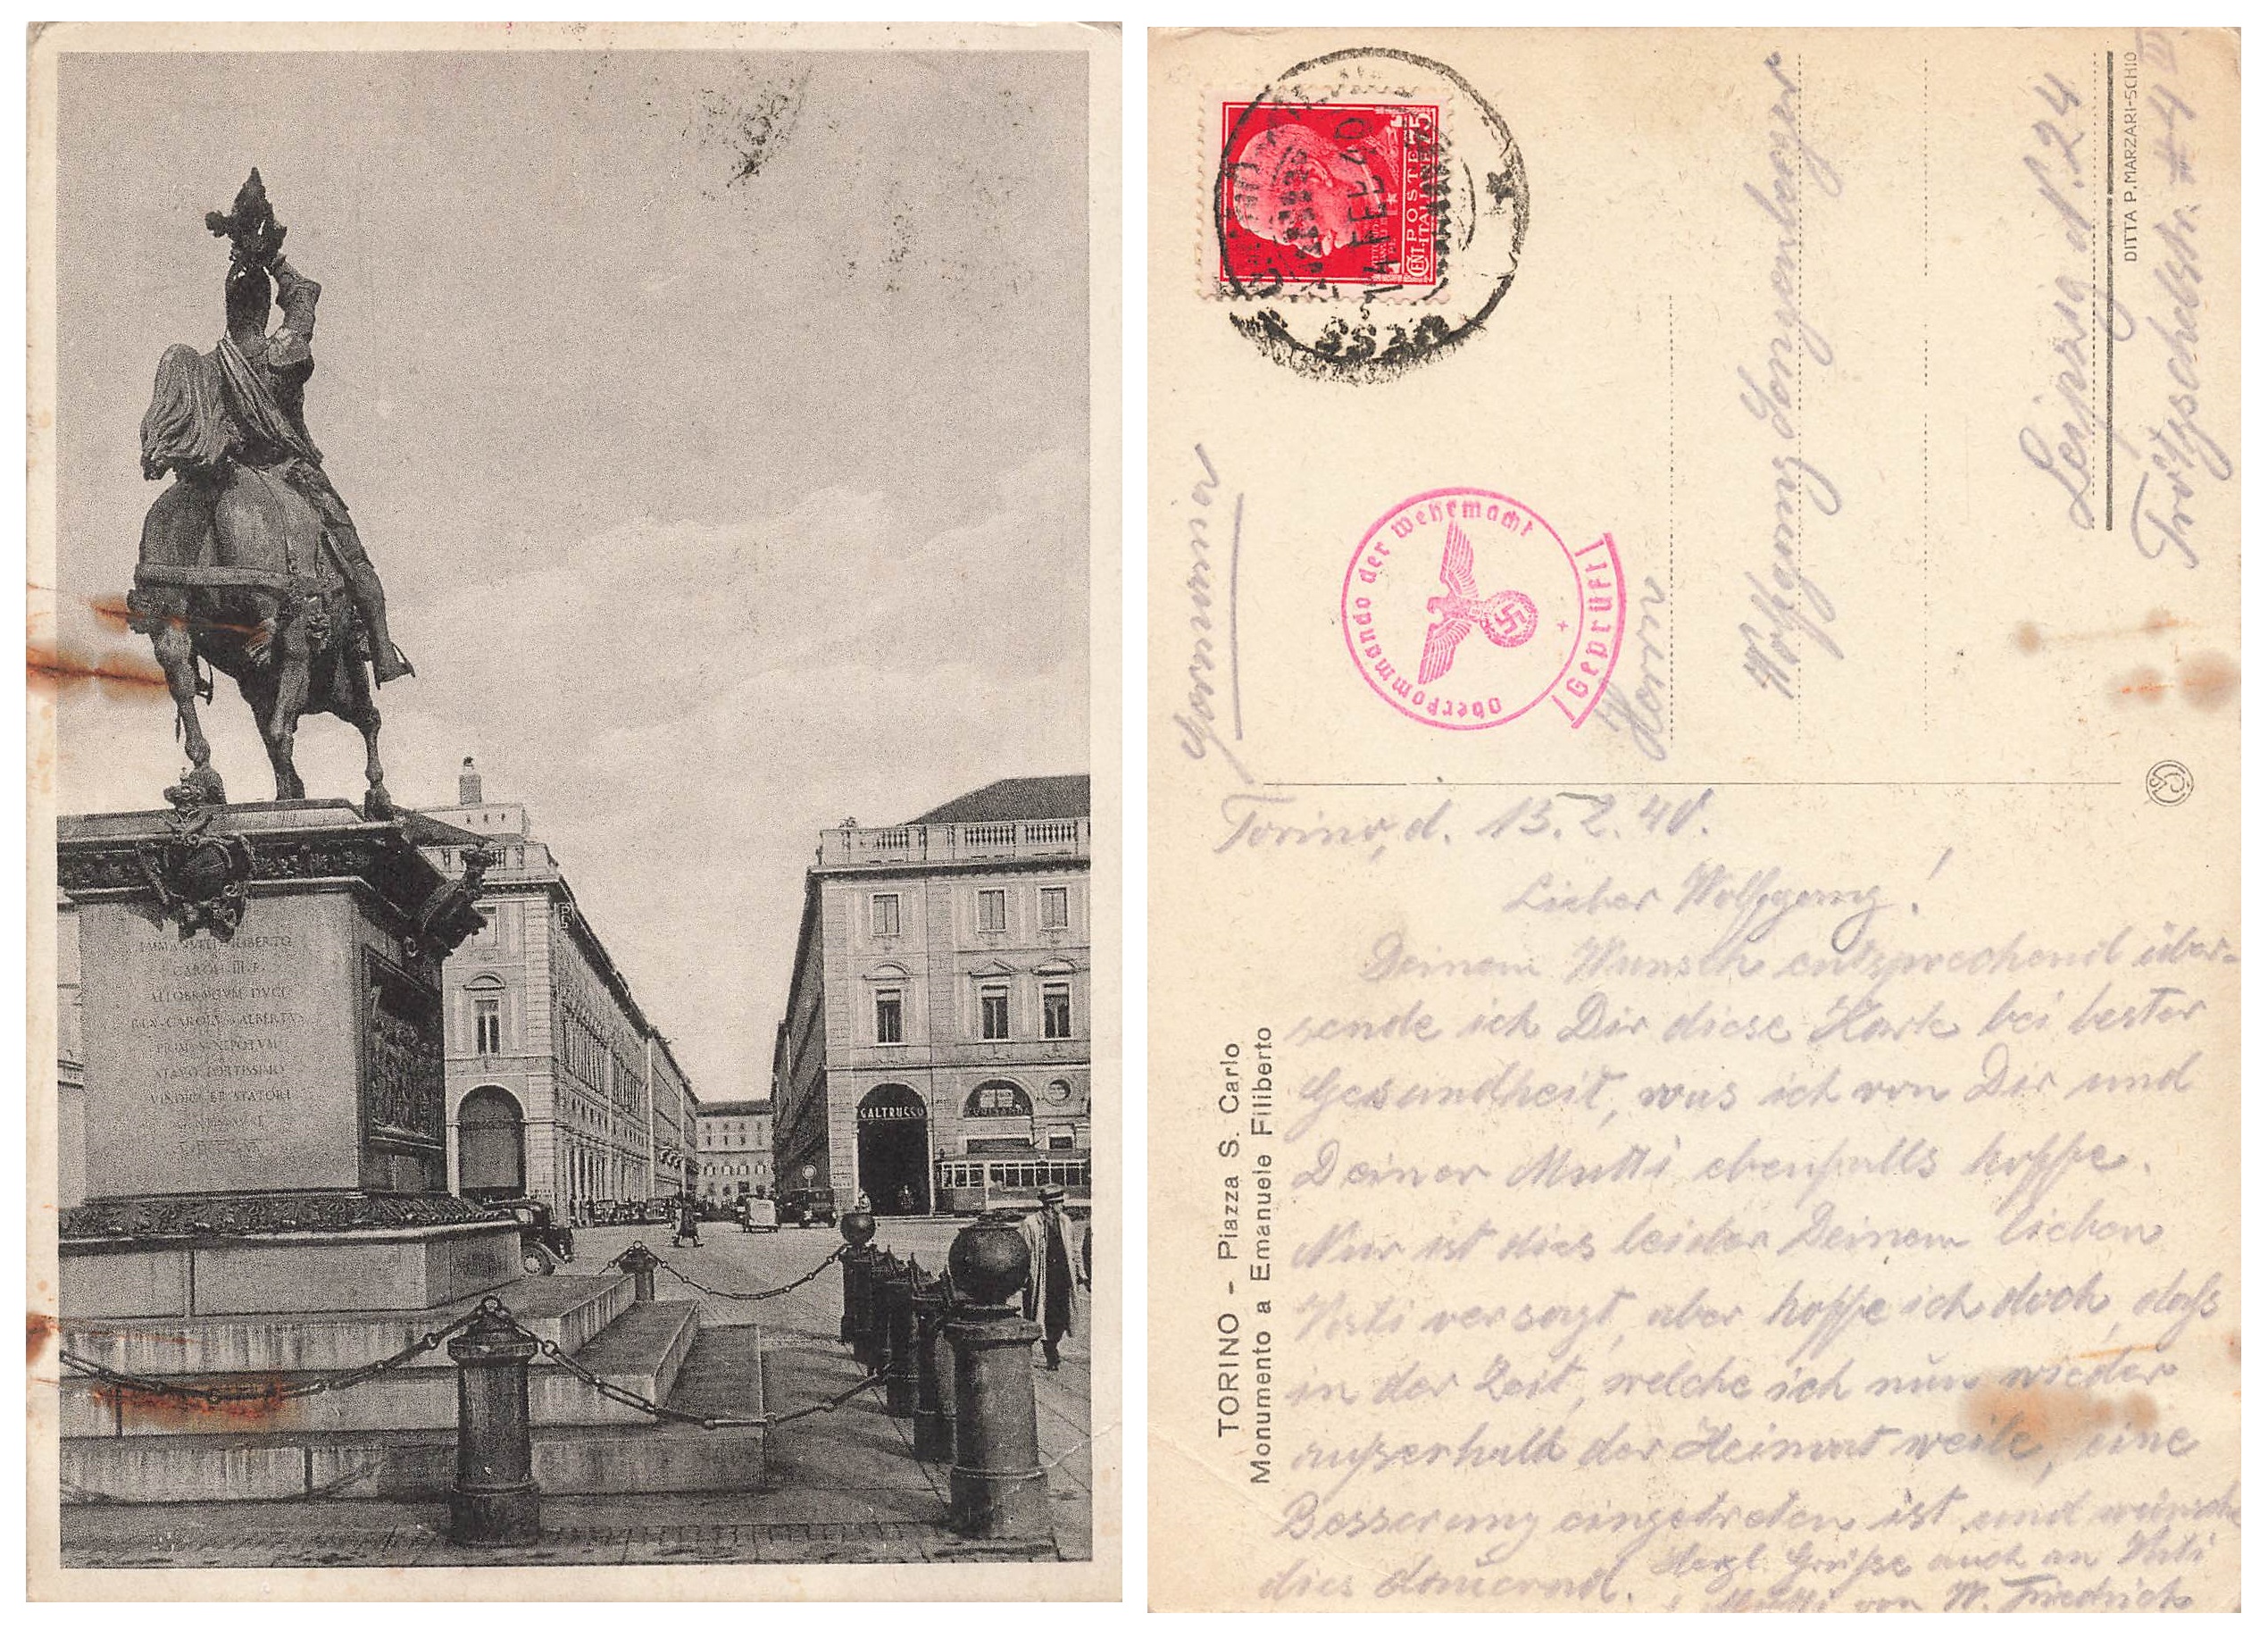 EMMANVELI PHILIBERTO
CAROLI III F.
ALLOBROGVM DVCI
REX CAROLVS ALBERTVS
PRIMVS NEPOTVM
ATAVO FORTISSIMO
VINDICI ET STATORI
GALTRUCCO
POSTE
ITALIANE
CENT. 75
14 FEB 40
Oberkommando der Wehrmacht
Geprüft
Germania
Herrn
Wolfgang
Leipzig N. 24
44 III
DITTA P. MARZARI-SCHIO
TORINO - Piazza S. Carlo
Monumento a Emanuele Filiberto
Torino, d. 15.2.40.
Lieber Wolfgang!
Deinem Wunsch entsprechend über-
sende ich Dir diese Karte bei bester
Gesundheit, was ich von Dir und
Deiner Mutti ebenfalls hoffe.
Nur ist dies leider Deinem lieben
Vati versagt, aber hoffe ich doch, daß
in der Zeit, welche ich nun wieder
außerhalb der Heimat weile, eine
Besserung eingetreten ist und wünsche
dies dauernd. Herzl. Grüße auch an Vati
Mutti von W. Friedrich